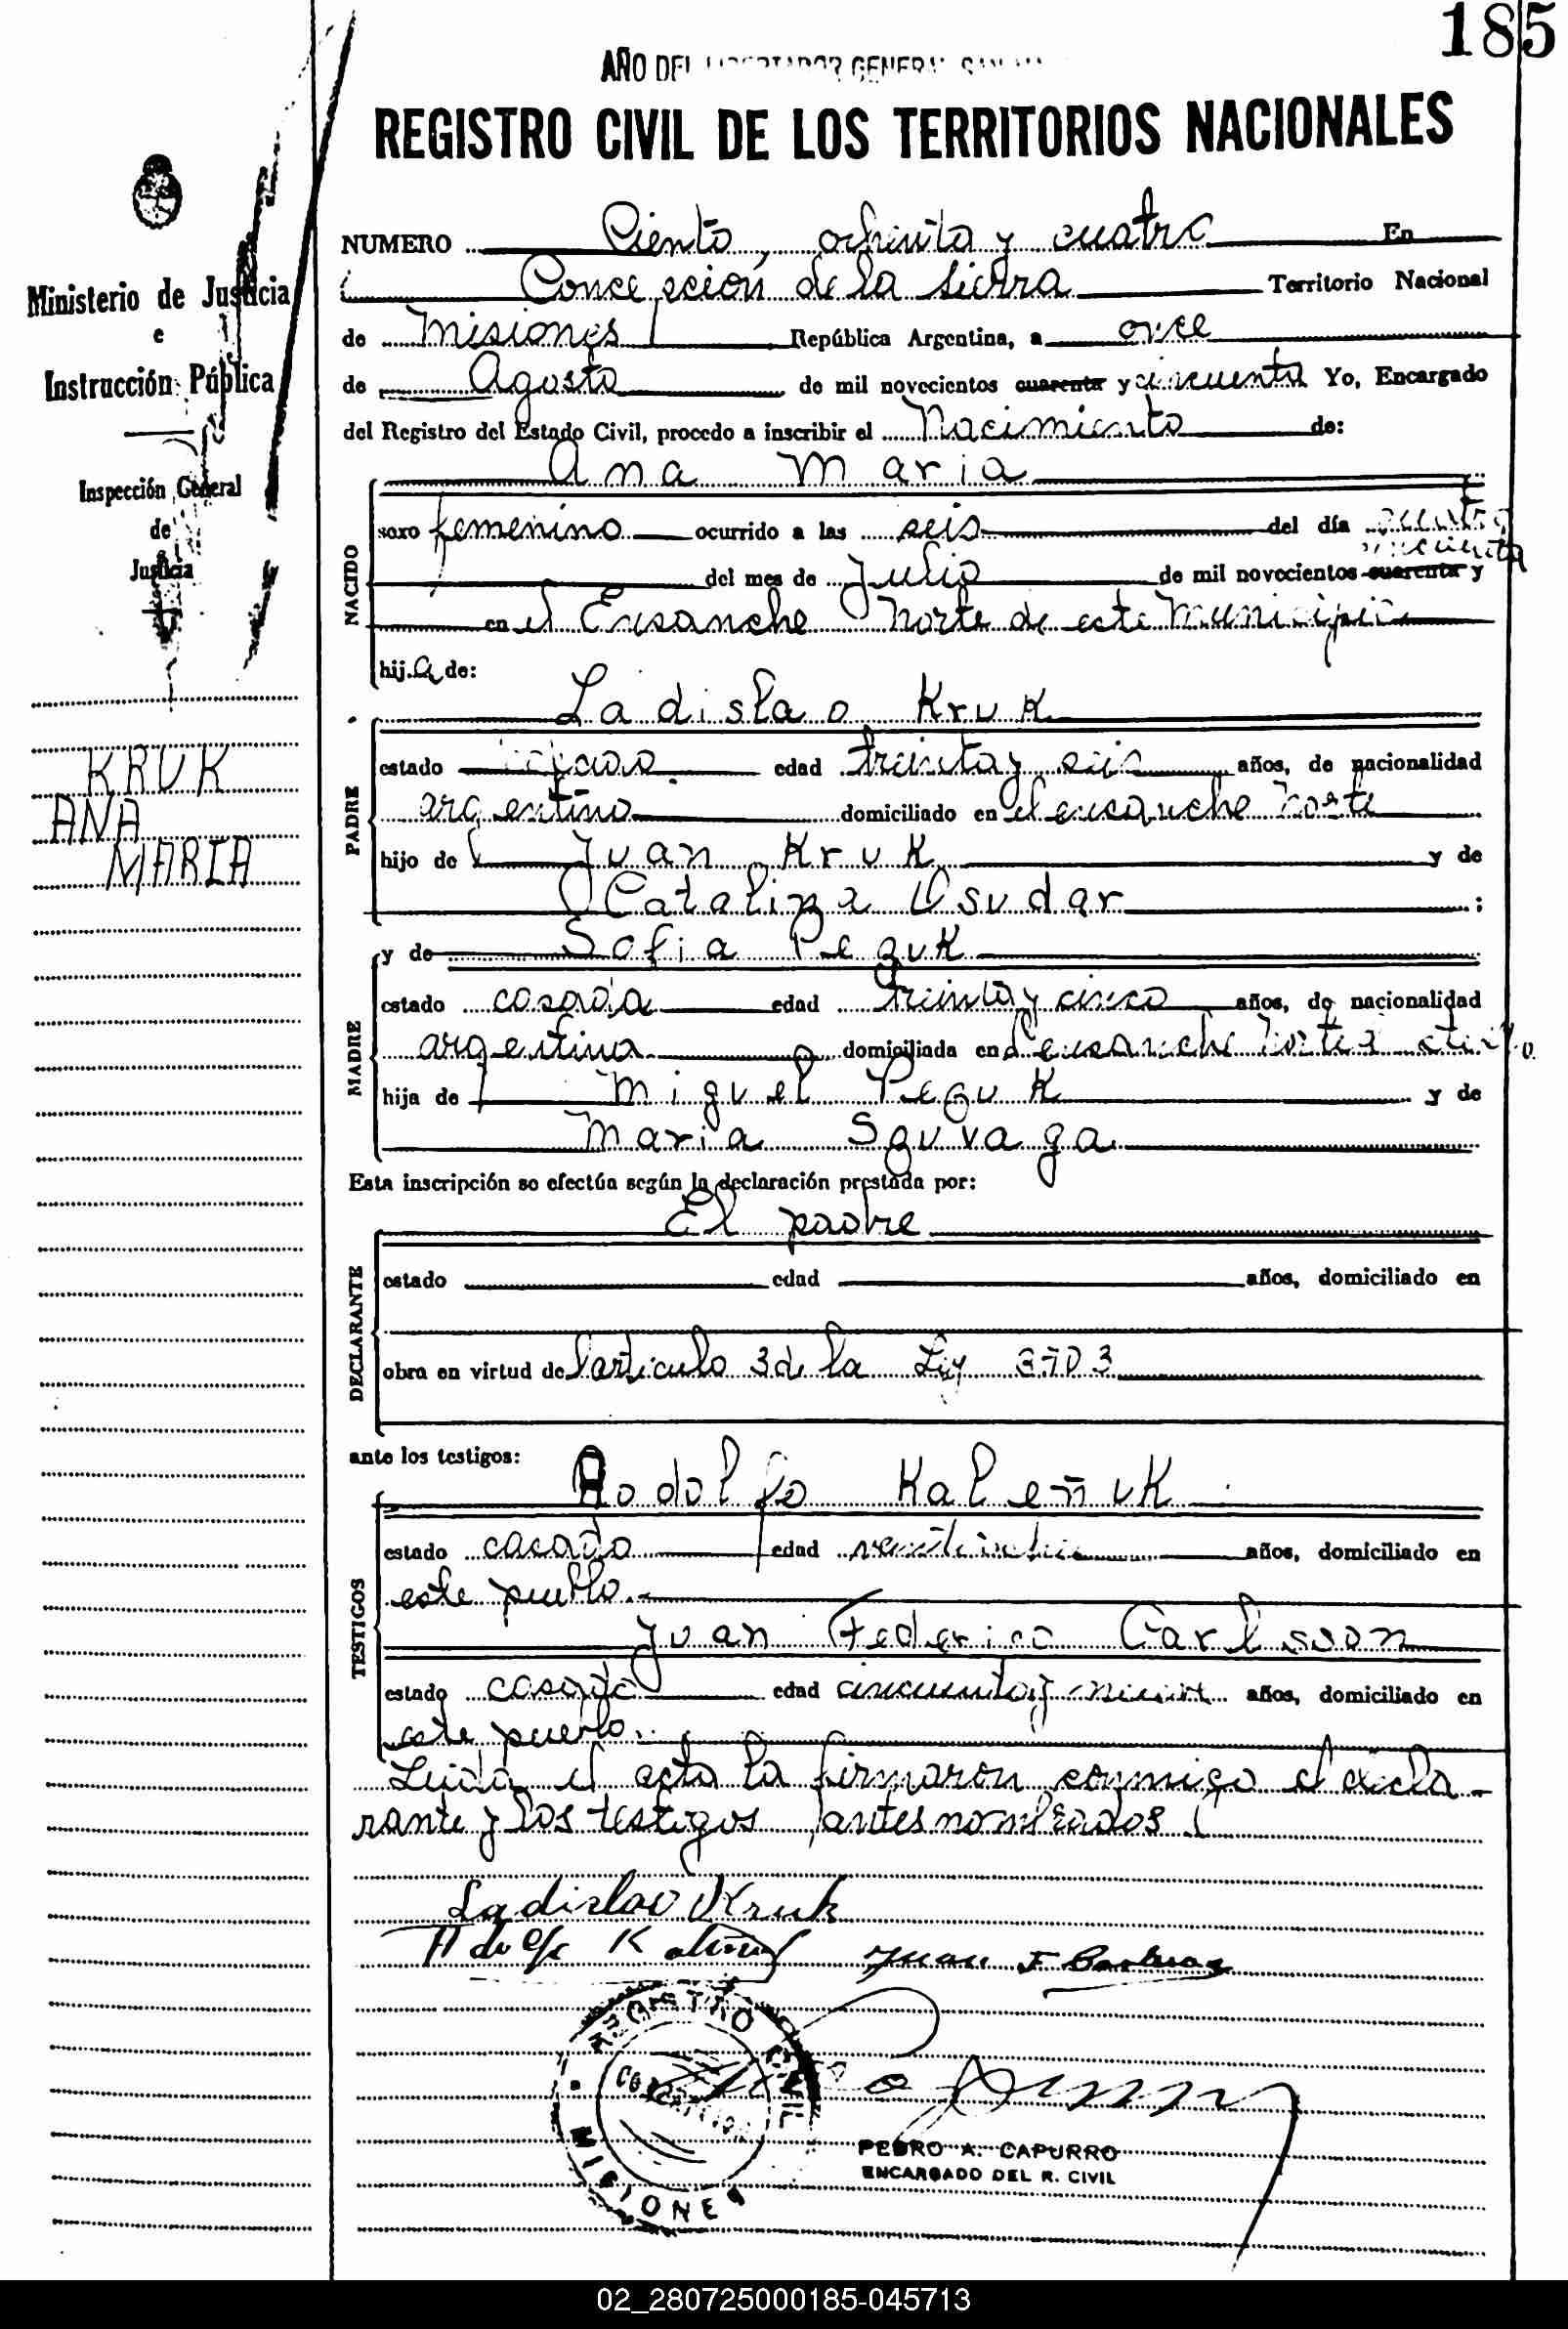 185
AÑO DEL LIBERTADOR GENERAL SAN
REGISTRO CIVIL DE LOS TERRITORIOS NACIONALES
Ministerio de Justicia
e
Instrucción Pública
Inspección General
de
Justicia
KRUK
ANA
MARIA
NUMERO Ciento, ochenta y cuatro En
Concepción de la Sierra Territorio Nacional
de Misiones República Argentina, a once
de Agosto de mil novecientos cuarenta y cincuenta Yo, Encargado
del Registro del Estado Civil, procedo a inscribir el Nacimiento de:
NACIDO
Ana Maria
sexo femenino ocurrido a las seis del día cuatro
cincuenta
del mes de Julio de mil novecientos cuarenta y
en el Ensanche Norte de este Municipio
hija de:
PADRE
Ladislao Kruk
estado casado edad treinta y seis años, de nacionalidad
argentino domiciliado en el ensanche Norte
hijo de Juan Kruk y de
Catalina Usudar ;
MADRE
y de Sofia Peguk
estado casada edad treinta y cinco años, de nacionalidad
argentina domiciliada en el ensanche Norte
hija de Miguel Peguk y de
Maria Sauvaga
Esta inscripción se efectúa según la declaración prestada por:
DECLARANTE
El padre
estado edad años, domiciliado en
obra en virtud del articulo 3 de la Ley 3703
ante los testigos:
TESTIGOS
Rodolfo Kaleñuk
estado casado edad veintiocho años, domiciliado en
este pueblo.-
Juan Federico Carlsson
estado casado edad cincuenta y nueve años, domiciliado en
este pueblo.
Leida el acta la firmaron conmigo el decla-
rante y los testigos antes nombrados
Ladislao Kruk
Juan F
REGISTRO CIVIL
CONCEPCION
MISIONES
PEDRO A. CAPURRO
ENCARGADO DEL R. CIVIL
02_280725000185-045713